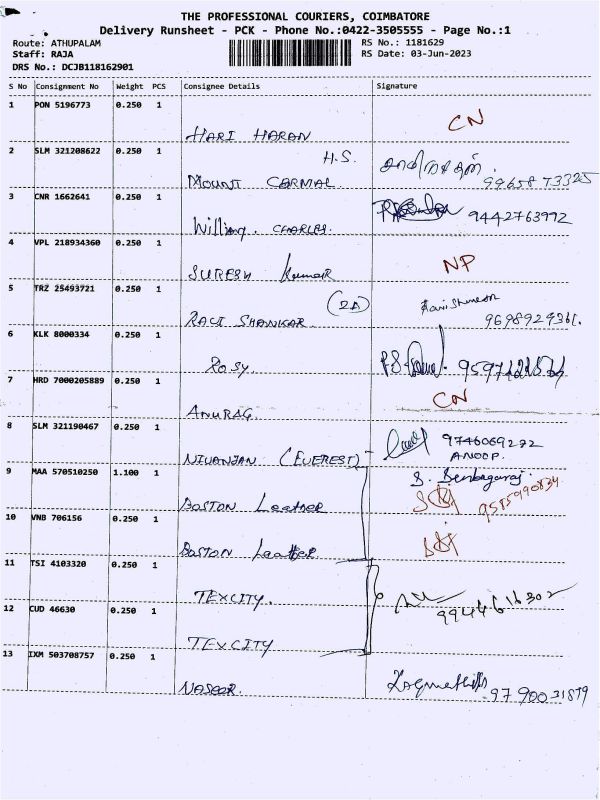 THE PROFESSIONAL COURIERS, COIMBATORE
Delivery Runsheet - PCK - Phone No.:0422-3505555 - Page No.:1
Route: ATHUPALAM
RS No.: 1181629
Staff: RAJA
RS Date: 03-Jun-2023
DRS No.: DCJB118162901
S No Consignment No Weight PCS Consignee Details Signature
1 PON 5196773 0.250 1
HARI HARAN CN
2 SLM 321208622 0.250 1
H.S.
MOUNT CARMAL 99658 73325
3 CNR 1662641 0.250 1
William. CHARLES. 9442763992
4 VPL 218934360 0.250 1
SURESH Kumar NP
5 TRZ 25493721 0.250 1
(2A)
RAVI SHANKAR 9698929361.
6 KLK 8000334 0.250 1
Rosy.
7 HRD 7000205889 0.250 1
ANURAG. CN
8 SLM 321190467 0.250 1
9746069272
NIVANJAN (EVEREST) ANOOP.
9 MAA 570510250 1.100 1
S. Senbagaraj.
BOSTON Leather 9585990834
10 VNB 706156 0.250 1
BOSTON Leather
11 TSI 4103320 0.250 1
TEXCITY. 9944616302
12 CUD 46630 0.250 1
TEXCITY
13 IXM 503708757 0.250 1
NASEER. 97 90031879